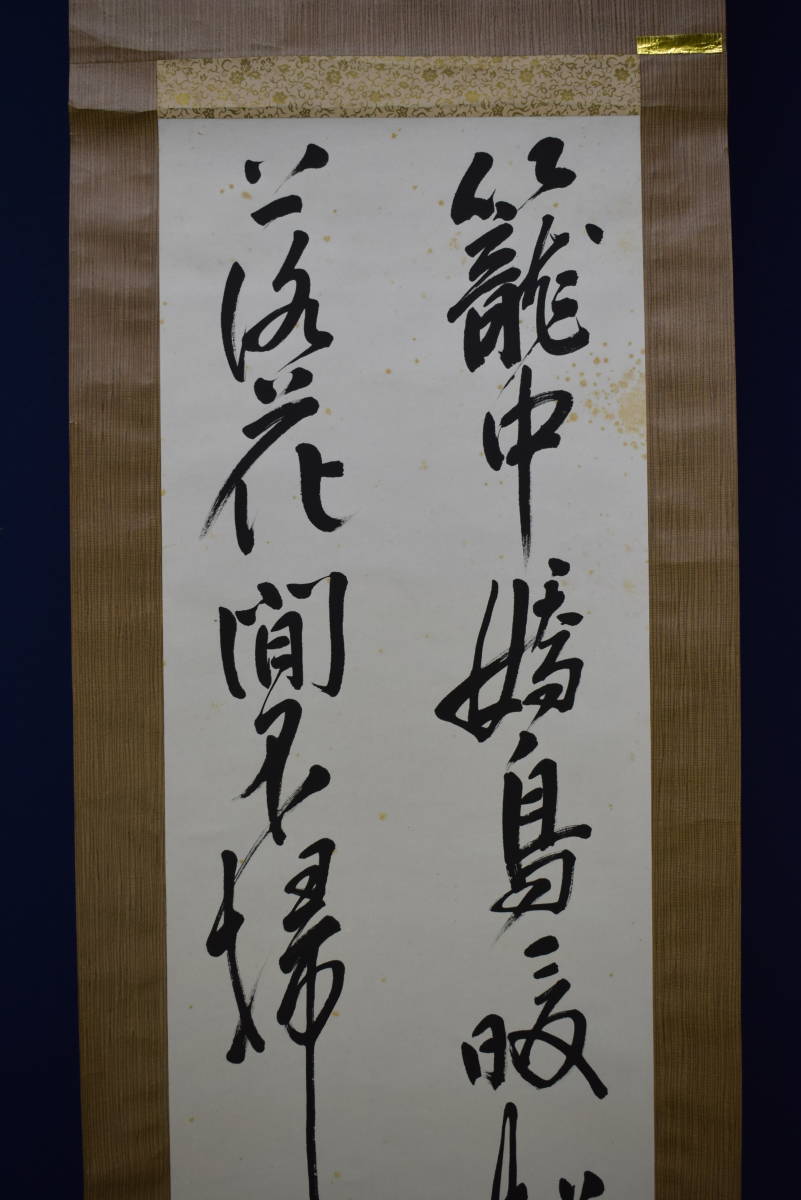 籠中嬌鳥暖
落花閒不掃